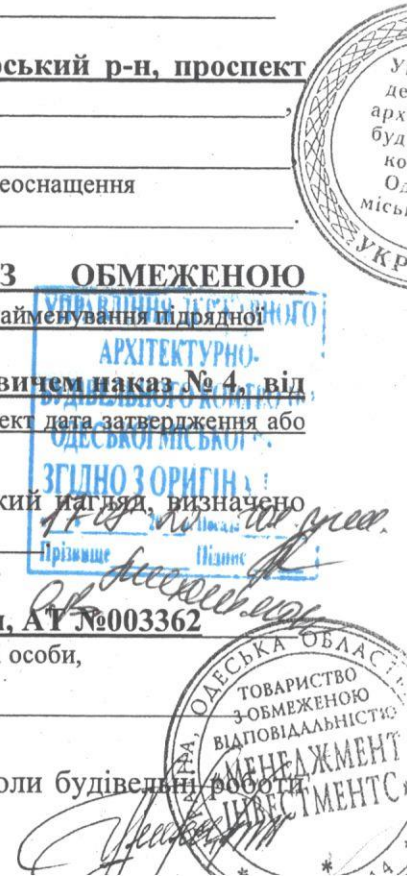 ський р-н, проспект
,
еоснащення
.
З ОБМЕЖЕНОЮ
айменування підрядної
вичем наказ № 4, від
ект дата затвердження або
кий нагляд, визначено
и, АТ №003362
особи,
оли будівельні роботи
УПРАВЛІННЯ ДЕРЖАВНОГО
АРХІТЕКТУРНО-
БУДІВЕЛЬНОГО КОНТРОЛЮ
ОДЕСЬКОЇ МІСЬКОЇ
ЗГІДНО З ОРИГІНА
Прізвище Підпис
арх
буд
ко
Од
міськ
УКР
ОДЕСЬКА ОБЛАСТ
ТОВАРИСТВО
З ОБМЕЖЕНОЮ
ВІДПОВІДАЛЬНІСТЮ
МЕНЕДЖМЕНТ
ІНВЕСТМЕНТС